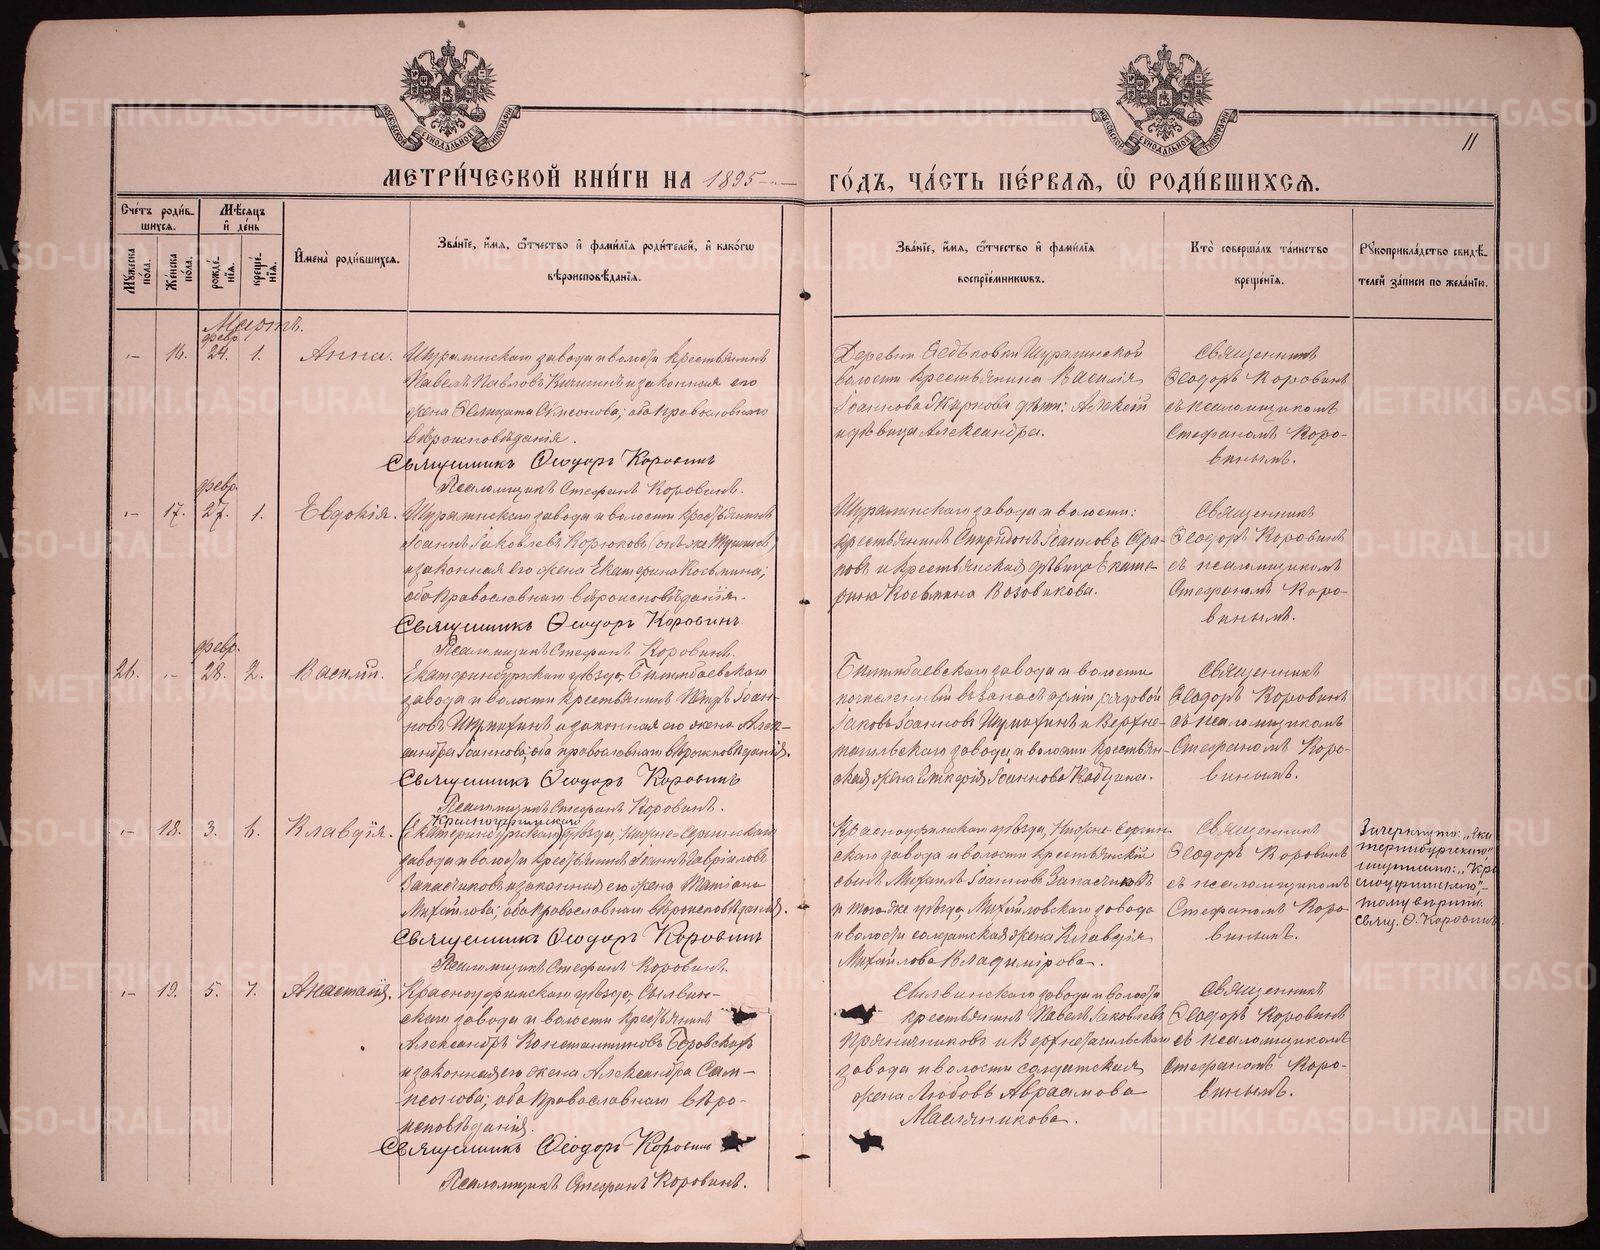 METRIKI.GASO-URAL.RU
МОСКОВСКОЙ СѴНОДАЛЬНОЙ ТИПОГРАФІИ
МОСКОВСКОЙ СѴНОДАЛЬНОЙ ТИПОГРАФІИ
11
МЕТРИ́ЧЕСКОЙ КНИ́ГИ НА 1895
ГО́ДЪ, ЧА́СТЬ ПЕ́РВАЯ, Ѡ РОДИ́ВШИХСЯ.
Сче́тъ роди́в-
шихся.
Мꙋжеска по́ла.
Же́нска по́ла.
Мѣ́сяцъ
и҆ де́нь
рожде́-
нїя.
креще́-
нїя.
И҆мена̀ роди́вшихся.
Зва́нїе, и҆́мя, ѻ҆́тчество и҆ фами́лїя роди́телей, и҆ како́гѡ
вѣроисповѣ́данїя.
Зва́нїе, и҆́мя, ѻ҆́тчество и҆ фами́лїя
воспрїе́мникѡвъ.
Кто̀ соверша́лъ та́инство
креще́нїя.
Рꙋкоприкла́дство свидѣ́-
телей за́писи по жела́нїю.
Мартъ.
февр.
- 16. 24. 1. Анна.
Шуралинскаго завода и волости крестьянинъ
Павелъ Павловъ Кичигинъ и законная его
жена Фелицата Сѵмеонова; оба православнаго
вѣроисповѣданія.
Священникъ Ѳеодоръ Коровинъ
Псаломщикъ Стефанъ Коровинъ.
Деревни Ѳедьковки Шуралинской
волости крестьянина Василія
Іоаннова дѣти: Алексѣй
и дѣвица Александра.
Священникъ
Ѳеодоръ Коровинъ
съ псаломщикомъ
Стефаномъ Коро-
винымъ.
февр.
- 17. 27. 1. Евдокія.
Шуралинскаго завода и волости крестьянинъ
Іоаннъ Іаковлевъ Корюковъ (онъ же
и законная его жена Екатерина Косьмина;
оба православнаго вѣроисповѣданія.
Священникъ Ѳеодоръ Коровинъ
Псаломщикъ Стефанъ Коровинъ.
Шуралинскаго завода и волости:
крестьянинъ Спиридонъ Іоанновъ Ара-
повъ и крестьянская дѣвица Екате-
рина Косьмина Возовикова.
Священникъ
Ѳеодоръ Коровинъ
съ псаломщикомъ
Стефаномъ Коро-
винымъ.
февр.
26. - 28. 2. Василій.
Екатеринбургскаго уѣзда, Билимбаевскаго
завода и волости крестьянинъ Петръ Іоан-
новъ Шумихинъ и законная его жена Алек-
сандра Іоаннова; оба православнаго вѣроисповѣданія.
Священникъ Ѳеодоръ Коровинъ
Псаломщикъ Стефанъ Коровинъ.
Билимбаевскаго завода и волости
перечисленный въ запасъ арміи рядовой
Іаковъ Іоанновъ Шумихинъ и Верхне-
тагильскаго завода и волости крестьян-
ская жена Гликерія Іоаннова
Священникъ
Ѳеодоръ Коровинъ
съ псаломщикомъ
Стефаномъ Коро-
винымъ.
- 18. 3. 6. Клавдія.
Красноуфимскаго
(Екатеринбургскаго) уѣзда, Нижне-Сергинскаго
завода и волости крестьянинъ Іоаннъ Гавріиловъ
Запасчиковъ и законная его жена Татіана
Михайлова; оба православнаго вѣроисповѣданія.
Священникъ Ѳеодоръ Коровинъ
Псаломщикъ Стефанъ Коровинъ.
Красноуфимскаго уѣзда, Нижне-Сергин-
скаго завода и волости крестьянскій
сынъ Михаилъ Іоанновъ Запасчиковъ
и того же уѣзда, Михайловскаго завода
и волости солдатская жена Клавдія
Михайлова Владимірова.
Священникъ
Ѳеодоръ Коровинъ
съ псаломщикомъ
Стефаномъ Коро-
винымъ.
Зачеркнуто: „Ека
теринбургскаго",
написано: „Кра
сноуфимскаго"-
тому вѣрить.
Свящ. Ѳ. Коровинъ.
- 19. 5. 7. Анастасія.
Красноуфимскаго уѣзда, Сылвин-
скаго завода и волости крестьянинъ
Александръ Константиновъ Боровскихъ
и законная его жена Александра Сам-
псонова; оба православнаго вѣро-
исповѣданія.
Священникъ Ѳеодоръ Коровинъ
Псаломщикъ Стефанъ Коровинъ.
Сылвинскаго завода и волости
крестьянинъ Павелъ Іаковлевъ
Пряничниковъ и Верхнетагильскаго
завода и волости солдатская
жена Любовь Авраамова
Масленникова.
Священникъ
Ѳеодоръ Коровинъ
съ псаломщикомъ
Стефаномъ Коро-
винымъ.